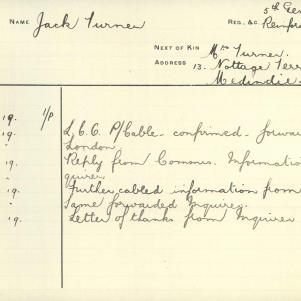 5th Gen
NAME Jack Turner REG. &C. Reinfor
NEXT OF KIN Mrs Turner.
ADDRESS 13. Nottage Terr
Medindie.
19. 1/P
19. L.C.O. P/Cable - confirmed - forwar
London.
19. Reply from Commrs. Informatio
quirer
19. Further cabled information from
Same forwarded Inquirer.
19. Letter of thanks from Inquirer